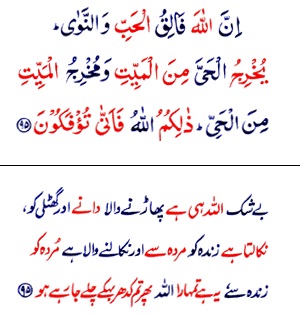 اِنَّ اللّٰهَ فَالِقُ الْحَبِّ وَ النَّوٰیؕ
یُخْرِجُ الْحَیَّ مِنَ الْمَیِّتِ وَ مُخْرِجُ الْمَیِّتِ
مِنَ الْحَیِّؕ ذٰلِكُمُ اللّٰهُ فَاَنّٰی تُؤْفَكُوْنَ ﴿۹۵﴾
بے شک اللہ ہی ہے پھاڑنے والا دانے اور گھٹلی کو،
نکالتا ہے زندہ کو مردہ سے اور نکالنے والا ہے مُردہ کو
زندہ سے یہ ہے تمہارا اللہ پھر تم کدھر بہکے چلے جا رہے ہو ﴿۹۵﴾